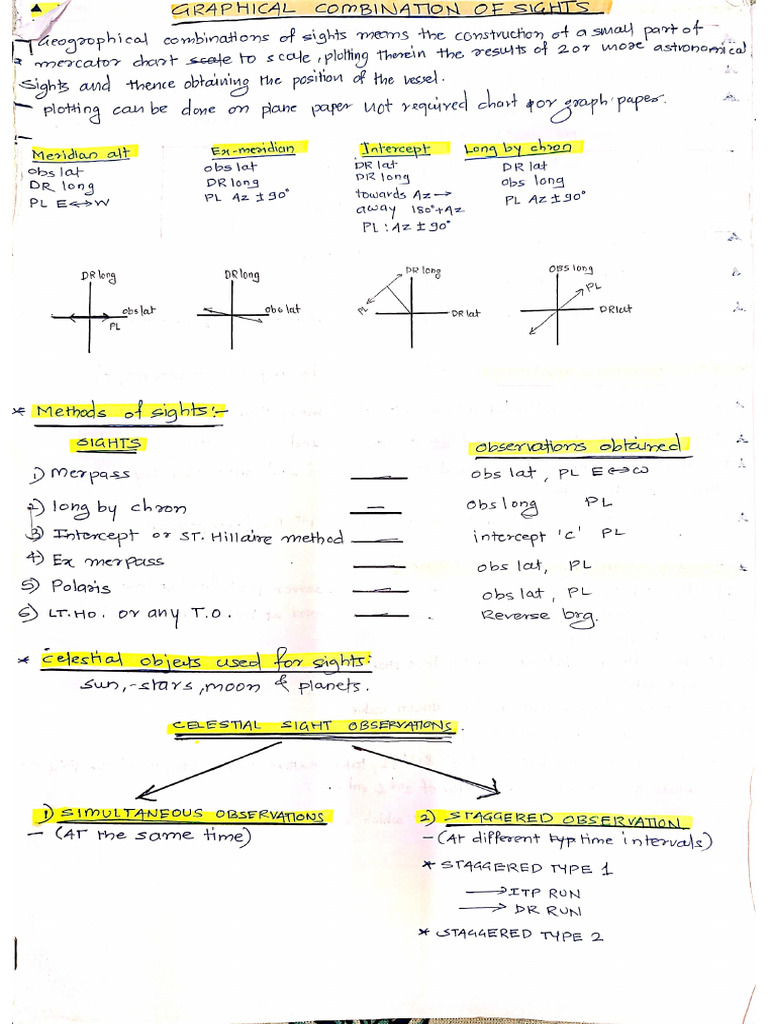 GRAPHICAL COMBINATION OF SIGHTS
Geographical combinations of sights means the construction of a small part of
mercator chart scale to scale, plotting therein the results of 2 or more astronomical
sights and thence obtaining the position of the vessel.
— plotting can be done on plane paper not required chart or graph paper.
Meridian alt Ex-meridian Intercept Long by chron
obs lat obs lat DR lat DR lat
DR long DR long DR long obs long
PL E↔W PL AZ ± 90° towards Az → PL AZ ± 90°
away 180°+Az
PL : AZ ± 90°
DR long DR long DR long OBS long
obs lat obs lat DR lat DR lat
PL PL PL
* Methods of sights:-
SIGHTS Observations obtained
1) Merpass — obs lat, PL E↔W
2) long by chron — obs long PL
3) Intercept or ST. Hillaire method — intercept 'c' PL
4) Ex merpass — obs lat, PL
5) Polaris — obs lat, PL
6) LT. Ho. or any T.O. — Reverse brg.
* Celestial objects used for sights:
sun, stars, moon & planets.
CELESTIAL SIGHT OBSERVATIONS.
1) SIMULTANEOUS OBSERVATIONS 2) STAGGERED OBSERVATION
— (At the same time) — (At different typ time intervals)
* STAGGERED TYPE 1
→ ITP RUN
→ DR RUN
* STAGGERED TYPE 2